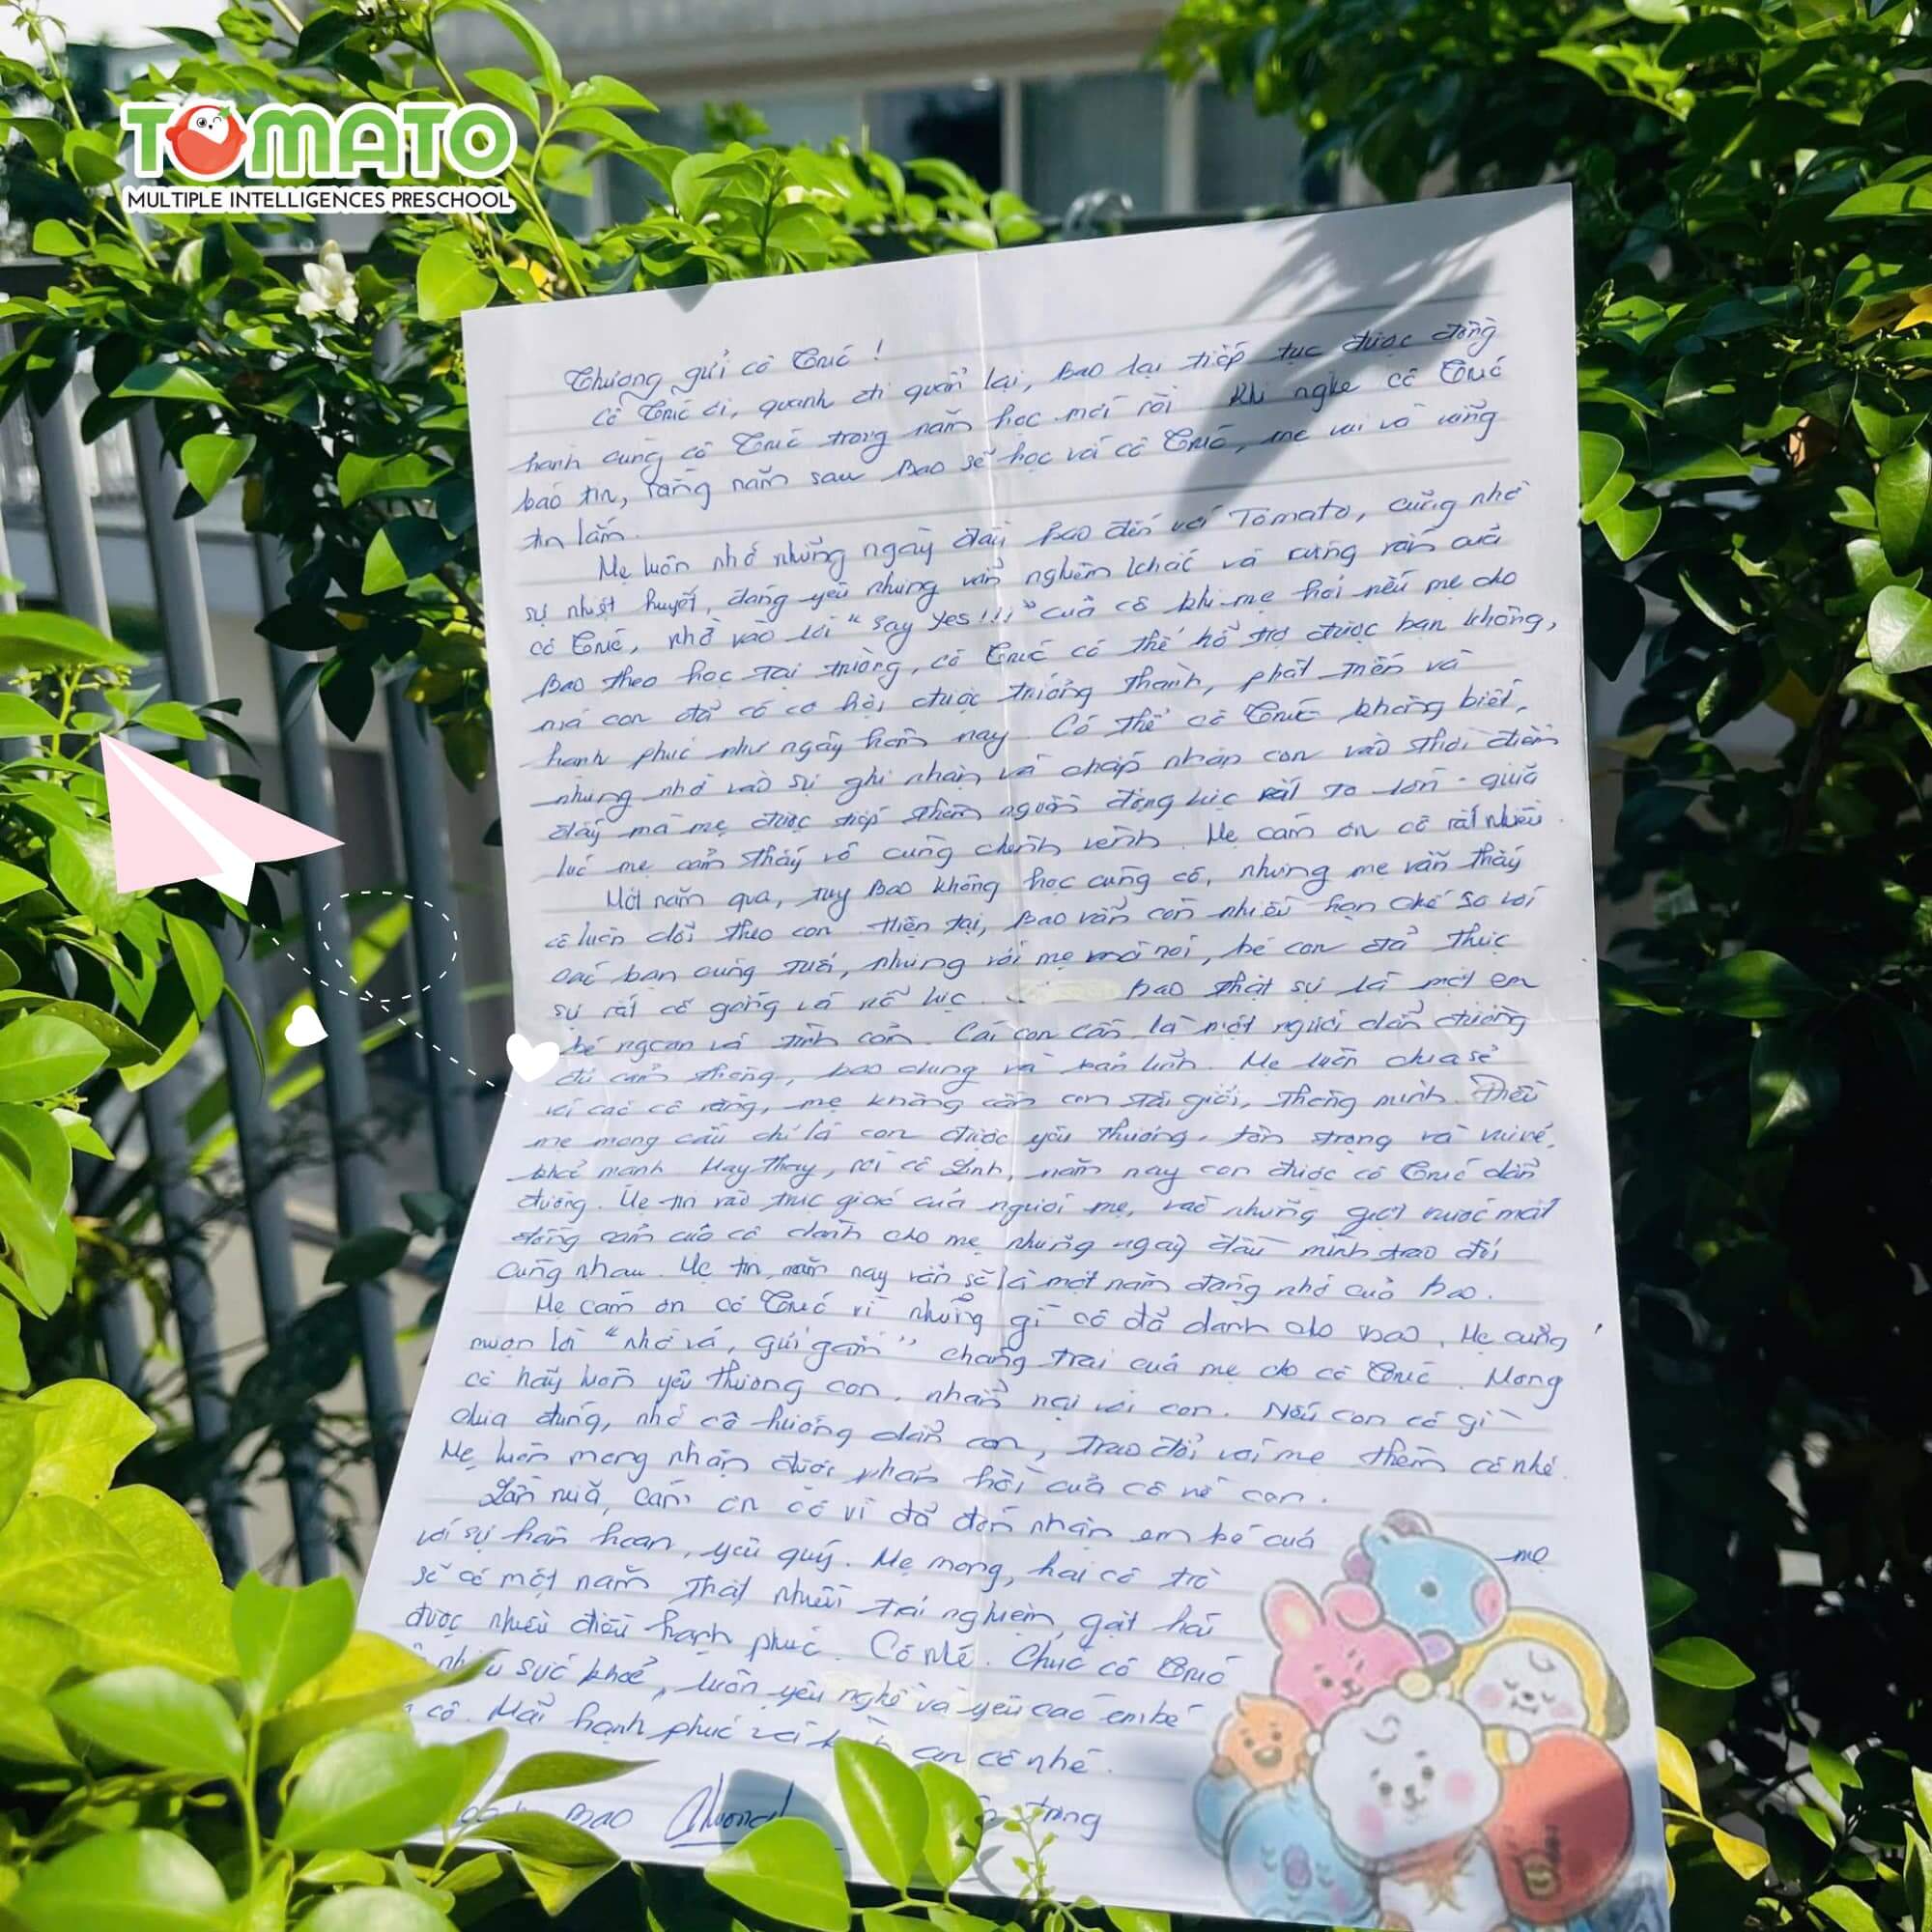 TOMATO
MULTIPLE INTELLIGENCES PRESCHOOL
Thương gửi cô Trúc!
Cô Trúc ơi, quanh đi quẩn lại, Bao lại tiếp tục được đồng
hành cùng cô Trúc trong năm học mới rồi. Khi nghe cô Trúc
báo tin, rằng năm sau Bao sẽ học với cô Trúc, mẹ vui và vững
tin lắm.
Mẹ luôn nhớ những ngày đầu Bao đến với Tomato, cũng nhờ
sự nhiệt huyết, đáng yêu nhưng vẫn nghiêm khắc và cứng rắn của
cô Trúc, nhờ vào lời "Say Yes!!!" của cô khi mẹ hỏi nếu mẹ cho
Bao theo học tại trường, cô Trúc có thể hỗ trợ được bạn không,
mà con đã có cơ hội được trưởng thành, phát triển và
hạnh phúc như ngày hôm nay. Có thể cô Trúc không biết,
nhưng nhờ vào sự ghi nhận và chấp nhận con vào thời điểm
đấy mà mẹ được tiếp thêm nguồn động lực rất to lớn - giữa
lúc mẹ cảm thấy vô cùng chênh vênh. Mẹ cảm ơn cô rất nhiều.
Một năm qua, tuy Bao không học cùng cô, nhưng mẹ vẫn thấy
cô luôn dõi theo con. Hiện tại, Bao vẫn còn nhiều hạn chế so với
các bạn cùng tuổi, nhưng với mẹ mà nói, bé con đã thực
sự rất cố gắng và nỗ lực. Bao thật sự là một em
bé ngoan và tình cảm. Cái con cần là một người dẫn đường
đủ cảm thông, bao dung và bản lĩnh. Mẹ luôn chia sẻ
với các cô rằng, mẹ không cần con tài giỏi, thông minh. Điều
mẹ mong cầu chỉ là con được yêu thương, tôn trọng và vui vẻ,
khoẻ mạnh. May thay, với cô Linh, năm nay con được cô Trúc dẫn
đường. Mẹ tin vào trực giác của người mẹ, vào những giọt nước mắt
đồng cảm của cô dành cho mẹ những ngày đầu mình trao đổi
cùng nhau. Mẹ tin, năm nay vẫn sẽ là một năm đáng nhớ của Bao.
Mẹ cảm ơn cô Trúc vì những gì cô đã dành cho Bao. Mẹ cũng
mượn lời "nhờ vả, gửi gắm" chàng trai của mẹ cho cô Trúc. Mong
cô hãy luôn yêu thương con, nhẫn nại với con. Nếu con có gì
chưa đúng, nhờ cô hướng dẫn con, trao đổi với mẹ thêm cô nhé.
Mẹ luôn mong nhận được phản hồi của cô về con.
Lần nữa, cảm ơn cô vì đã đón nhận em bé của mẹ
với sự hân hoan, yêu quý. Mẹ mong, hai cô trò
sẽ có một năm thật nhiều trải nghiệm, gặt hái
được nhiều điều hạnh phúc. Cô nhé. Chúc cô Trúc
sức khoẻ, luôn yêu nghề và yêu các em bé
cô. Mãi hạnh phúc và an cô nhé.
Bao